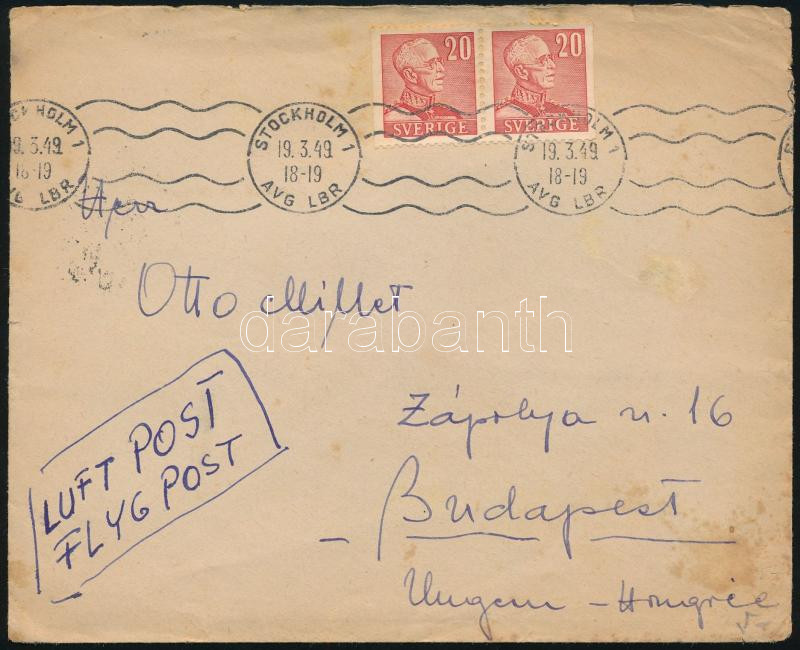 20 20
SVERIGE SVERIGE
STOCKHOLM 1
19.3.49
18-19
AVG LBR
STOCKHOLM 1
19.3.49
18-19
AVG LBR
STOCKHOLM 1
19.3.49
18-19
AVG LBR
Herr
Otto Millet
darabanth
LUFT POST
FLYG POST
Zápolya u. 16
Budapest
Ungern - Hongrie